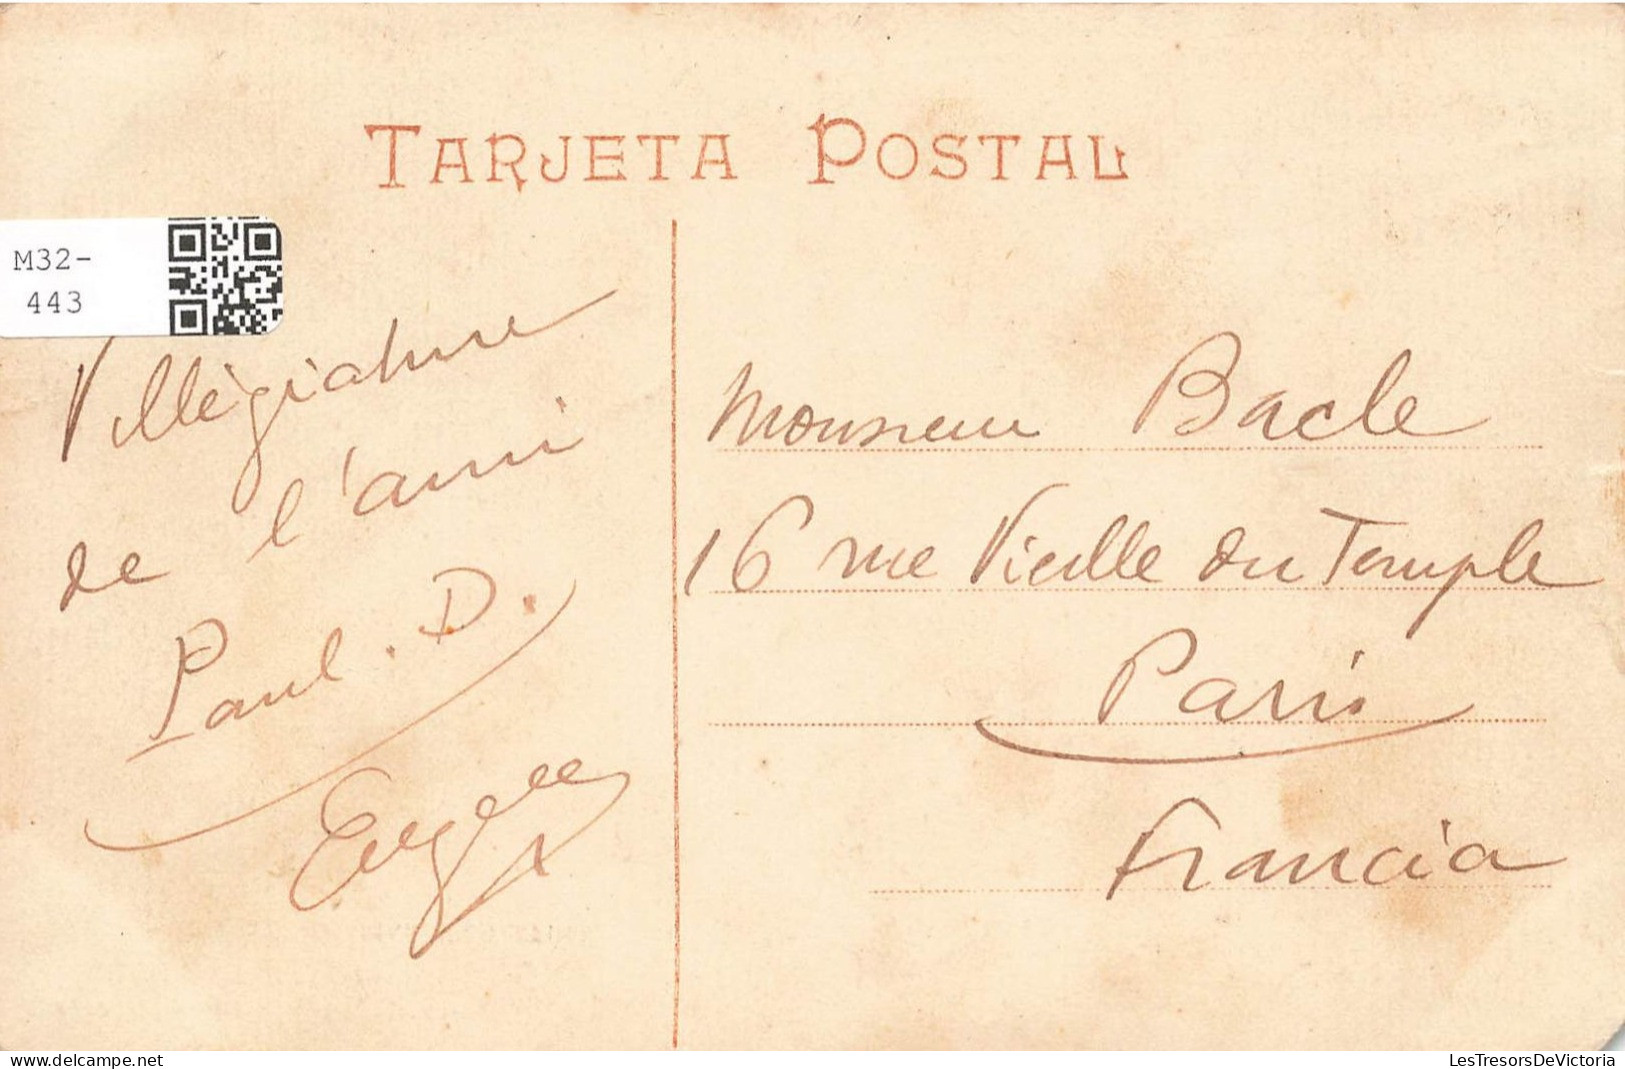 TARJETA POSTAL
M32-
443
Villégiature
de l'ami
Paul. D.
Monsieur Bacle
16 rue Vieille du Temple
Paris
Francia
delcampe.net
LesTresorsDeVictoria